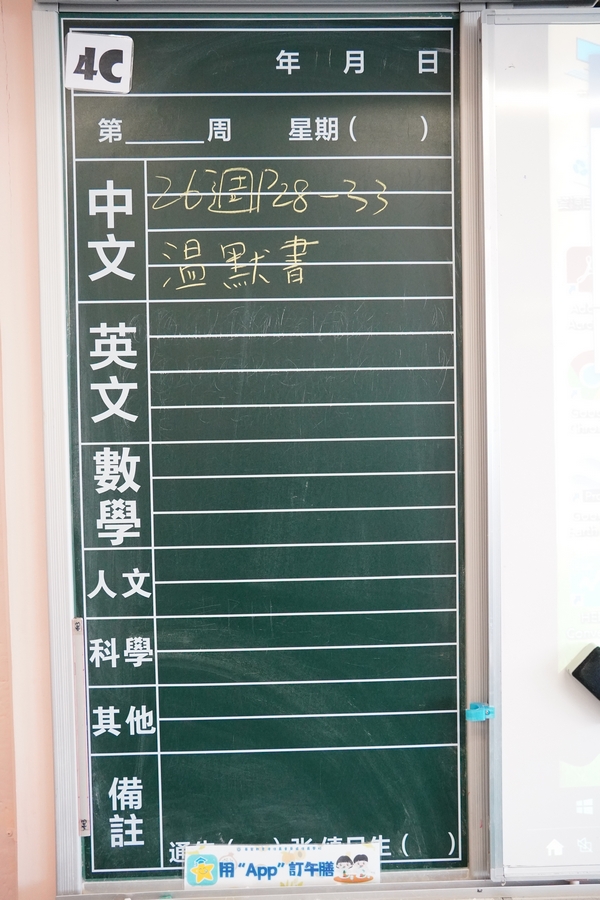 4C
年 月 日
第______周 星期( )
中文
26週P28-33
溫默書
英文
數學
人文
科學
其他
備註
通告( )張 值日生( )
用“App”訂午膳